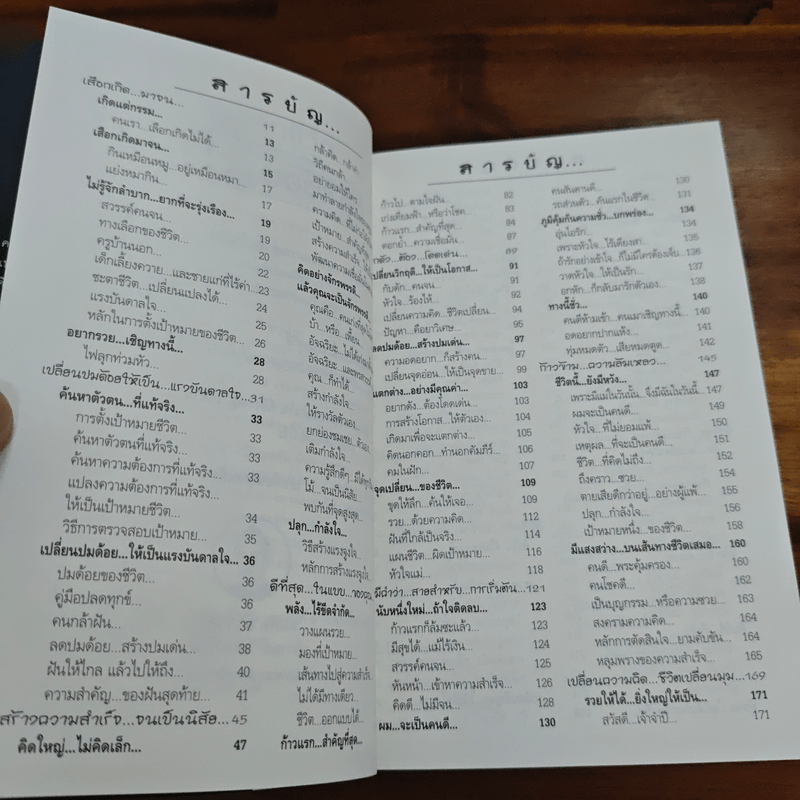 สารบัญ...
เลือกเกิด...มาจน... 11
เกิดแต่กรรม... 13
คนเรา...เลือกเกิดไม่ได้... 13
เลือกเกิดมาจน... 15
กินเหมือนหมู...อยู่เหมือนหมา... 17
แย่งหมากิน... 17
ไม่รู้จักลำบาก...ยากที่จะรุ่งเรือง... 19
สวรรค์คนจน... 19
ทางเลือกของชีวิต... 20
ครูบ้านนอก...
เด็กเลี้ยงควาย...และชายแก่ที่ไร้ค่า...
ชะตาชีวิต...เปลี่ยนแปลงได้... 24
แรงบันดาลใจ... 25
หลักในการตั้งเป้าหมายของชีวิต... 26
อยากรวย...เชิญทางนี้... 28
ไฟลุกท่วมหัว... 28
เปลี่ยนปมด้อยให้เป็น...แรงบันดาลใจ...31
ค้นหาตัวตน...ที่แท้จริง... 33
การตั้งเป้าหมายชีวิต... 33
ค้นหาตัวตนที่แท้จริง... 33
ค้นหาความต้องการที่แท้จริง... 33
แปลงความต้องการที่แท้จริง...
ให้เป็นเป้าหมายชีวิต... 34
วิธีการตรวจสอบเป้าหมาย... 35
เปลี่ยนปมด้อย...ให้เป็นแรงบันดาลใจ... 36
ปมด้อยของชีวิต... 36
คู่มือปลดทุกข์... 36
คนกล้าฝัน... 37
ลดปมด้อย...สร้างปมเด่น... 38
ฝันให้ไกล แล้วไปให้ถึง... 40
ความสำคัญ...ของฝันสุดท้าย... 41
สร้างความสำเร็จ...จนเป็นนิสัย... 45
คิดใหญ่...ไม่คิดเล็ก... 47
กล้าคิด...กล้า
วิถีคนกล้า
อย่ายอมให้ใคร
มาทำลายกำลังใจ
ความคิด...ที่ไม่
เป้าหมาย...สำคัญ
สร้างความสำเร็จ
พัฒนาความเชื่อมั่น
คิดอย่างจักรพรรดิ...
แล้วคุณจะเป็นจักรพรรดิ
คุณคือ...คนเก่งที่
บ้า...หรือ...เพี้ยน
อัจฉริยะ...ไม่ได้
อัจฉริยะ...และพรสวรรค์
คุณ...ก็ทำได้
สร้างกำลังใจ
ให้รางวัลตัวเอง
ยกย่องชมเชย...ตัวเอง
เติมกำลังใจ
ความรู้สึกดีๆ...มีได้
โม้...จนเป็นนิสัย
พบกันที่จุดสูงสุด
ปลุก...กำลังใจ...
วิธีสร้างแรงจูงใจ
หลักการสร้างแรงจูงใจ
ดีที่สุด...ในแบบ
พลัง...ไร้ขีดจำกัด...
วางแผนรวย...
มองที่เป้าหมาย...
เส้นทางไปสู่ความสำเร็จ
ไม่ได้มีทางเดียว...
ชีวิต...ออกแบบได้...
ก้าวแรก...สำคัญที่สุด...
สารบัญ...
ก้าวไป...ตามใจฝัน... 82
เก่งเทียมฟ้า...หรือว่าโชค... 83
ก้าวแรก...สำคัญที่สุด... 84
ตอกย้ำ...ความเชื่อมั่น... 87
...ต้อง...โดดเด่น... 89
เปลี่ยนวิกฤติ...ให้เป็นโอกาส... 91
กับดัก...คนจน... 91
หัวใจ...ร้องไห้... 92
เปลี่ยนความคิด...ชีวิตเปลี่ยน... 94
ปัญหา...คือยาวิเศษ... 95
ลดปมด้อย...สร้างปมเด่น... 97
ความอดอยาก...ก็สร้างคน... 97
เปลี่ยนจุดอ่อน...ให้เป็นจุดขาย... 99
แตกต่าง...อย่างมีคุณค่า... 103
อยากดัง...ต้องโดดเด่น... 103
การสร้างโอกาส...ให้ตัวเอง... 104
เกิดมาเพื่อจะแตกต่าง... 105
คิดนอกคอก...ทำนอกคัมภีร์... 106
คมในฝัก... 107
จุดเปลี่ยน...ของชีวิต... 109
ขุดให้ลึก...ค้นให้เจอ... 109
รวย...ด้วยความคิด... 110
ฝันที่ใกล้เป็นจริง... 114
แผนชีวิต...ผิดเป้าหมาย... 115
หัวใจแม่... 118
มีดีกว่า...สายสำหรับ...การเริ่มต้น...121
นับหนึ่งใหม่...ถ้าใจคิดลบ... 123
ก้าวแรกก็ล้มซะแล้ว... 123
มีสุขได้...แม้ไร้เงิน... 124
สวรรค์คนจน... 125
หันหน้า...เข้าหาความสำเร็จ... 126
คิดดี...ไม่มีจน... 128
ผม...จะเป็นคนดี... 130
คนสันดานดี... 130
รถส่วนตัว...คันแรกในชีวิต... 131
ภูมิคุ้มกันความชั่ว...บกพร่อง... 134
อุ่นไอรัก... 134
เพราะหัวใจ...ไร้เดียงสา...
ถ้ารักอย่างเข้าใจ...ก็ไม่มีใครต้องเจ็บ...
วาดหัวใจ...ให้เป็นรัก...
อกหัก...ก็กลับมารักตัวเอง...
ทางนี้ชั่ว... 140
คนดีห้ามเข้า...คนเมาเชิญทางนี้... 140
อดอยากปากแห้ง... 141
ทุ่มหมดตัว...เสียหมดตูด... 144
ก้าวข้าม...ความล้มเหลว... 145
ชีวิตนี้...ยังมีหวัง... 147
เพราะมีแม่ในวันนั้น...จึงมีฉันในวันนี้... 147
ผมจะเป็นคนดี... 149
หัวใจ...ที่ไม่ยอมแพ้... 150
เหตุผล...ที่จะเป็นคนดี... 151
ชีวิต...ที่คิดไม่ถึง... 152
ถึงคราว...ซวย... 154
ตายเสียดีกว่าอยู่...อย่างผู้แพ้... 155
ปลุก...กำลังใจ... 156
เป้าหมายหนึ่ง...ของชีวิต... 158
มีแสงสว่าง...บนเส้นทางชีวิตเสมอ... 160
คนดี...พระคุ้มครอง... 160
คนโชคดี... 162
เป็นบุญกรรม...หรือความซวย... 163
สงครามความคิด... 164
หลักการตัดสินใจ...ยามคับขัน... 164
หลุมพรางของความสำเร็จ... 164
เปลี่ยนความคิด...ชีวิตเปลี่ยนมุม...169
รวยให้ได้...ยิ่งใหญ่ให้เป็น... 171
สวัสดี...เจ้าจำปี... 171